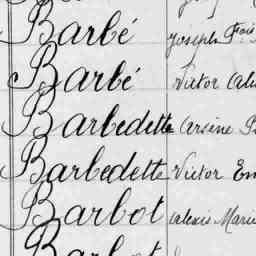 Barbé Joseph Fois
Barbé Victor
Barbedette Arsène
Barbedette Victor Em
Barbot Alexis Marie
Barbot